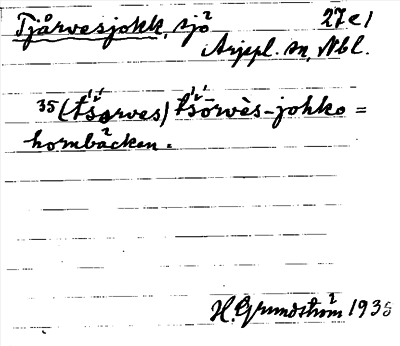 Tjårvesjokk, sjö 27 e 1
Arjepl. sn, Nbl.
35 (tšorves) tšorvès-johko =
hornbäcken.
H. Grundström 1935